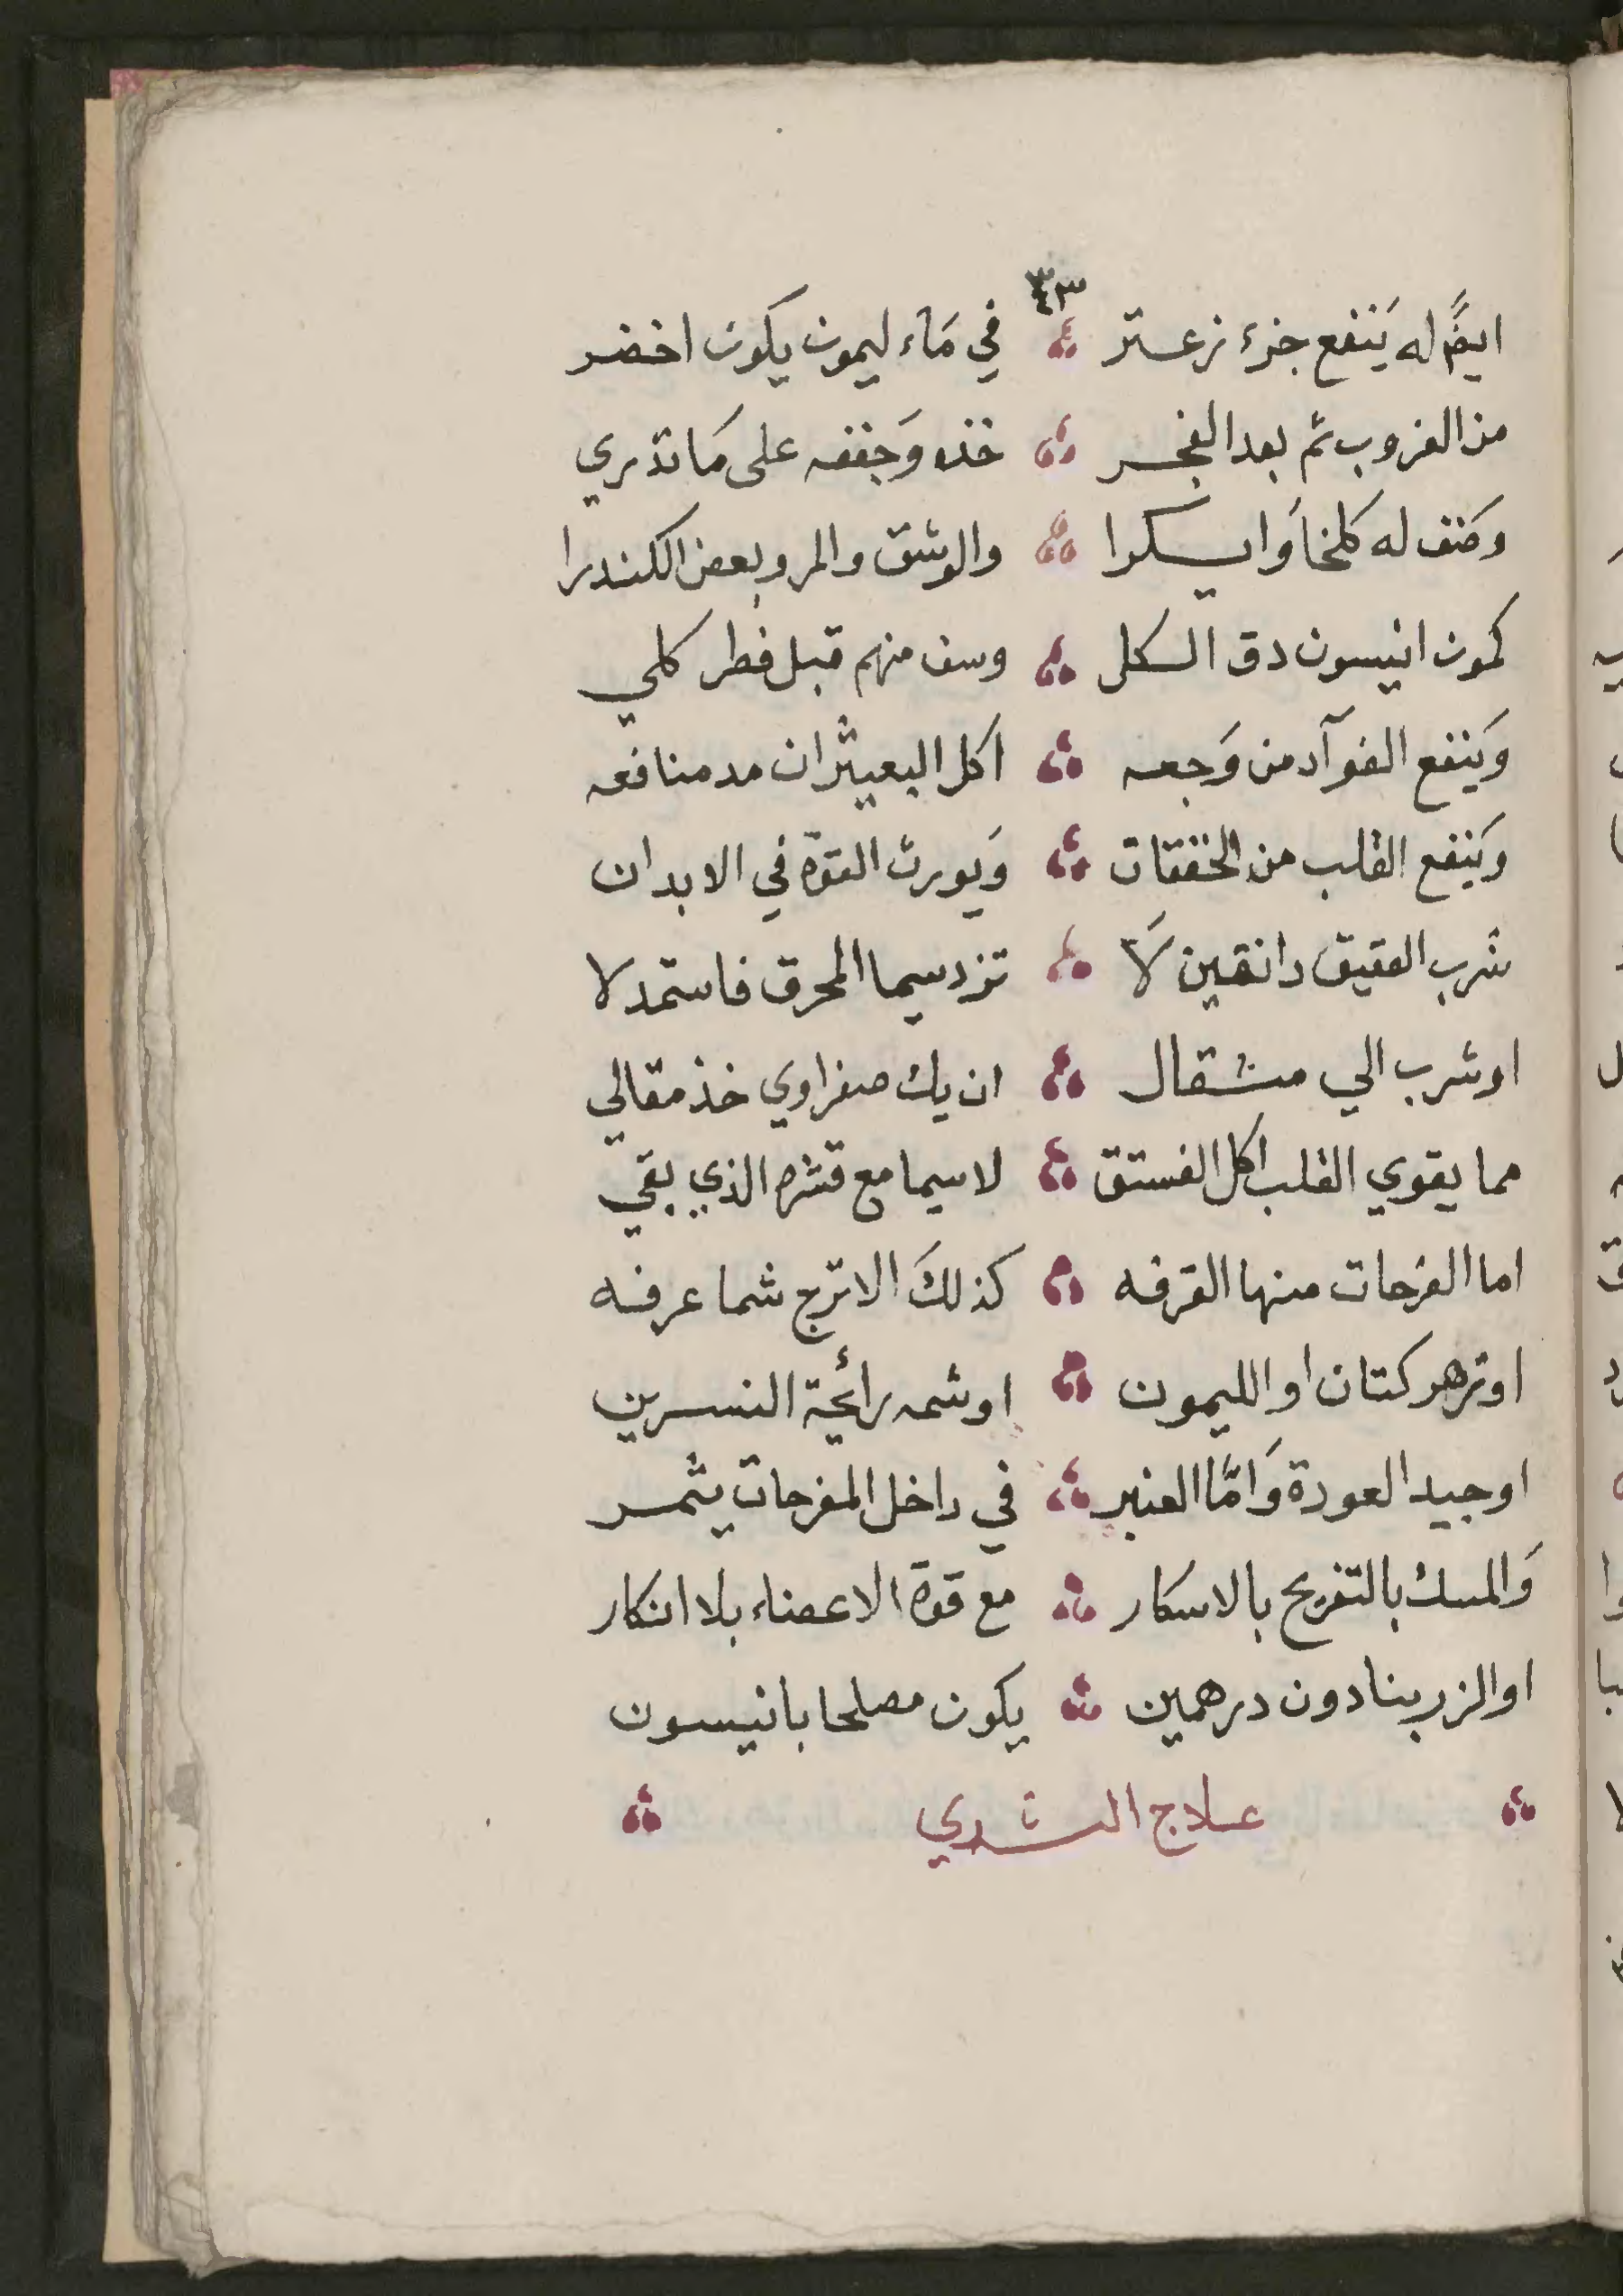 ٤٣
ايضًا له يَنفع جزء زعتر في مَاء ليمون يكون اخضر
من الغروب ثم بعد الفجر خذه وَجففه على مَا تدري
وَصف له كلخاً وَايسكرا والوشق والمر وبعض الكندرا
كمون انيسون دق الكل وسف منهم قبل فطر كلي
وَينفع الفوآد من وَجعه اكل البعيثران مد منافعه
وَينفع القلب من الخفقان وَيورث القوة في الابدان
شرب العقيق دانقين لَا تزد سيما المحرق فاستمد لا
او شرب الي مثقال ان يك صفراوي خذ مقالي
مما يقوي القلب اكل الفستق لاسيما مع قشره الذي بقي
اما الفرحات منها القرفه كذلكَ الاترج شما عرفه
او زهر كتان او الليمون او شمه رائحة النسرين
او جيد العودة وَامَّا العنبر في داخل المفرحات يثمر
وَالمسك بالتفريح بالاسكار مع قوة الاعضاء بلا انكار
او الزربنا دون درهمين يكون مصلحا بانيسون
علاج الثدي